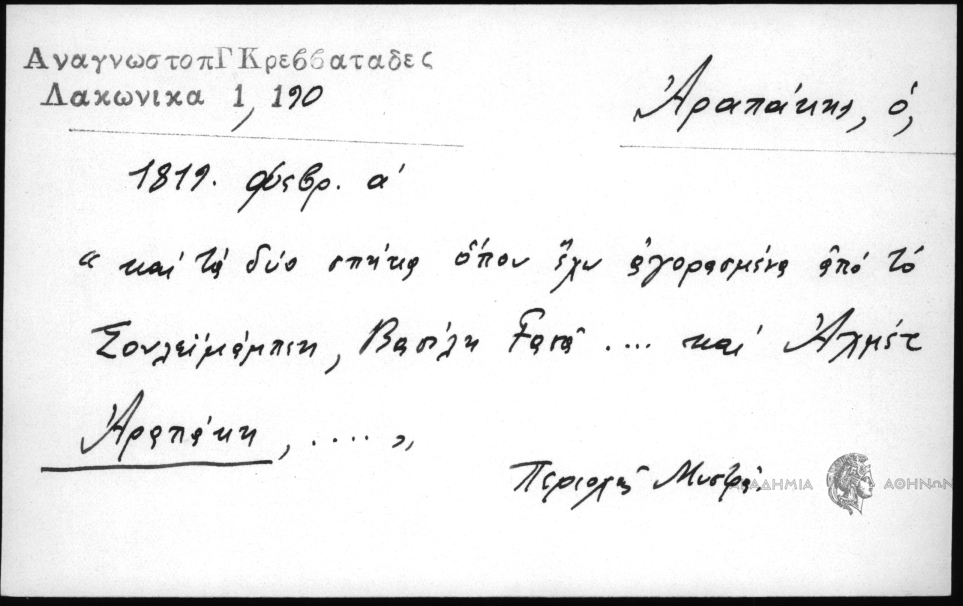 ΑναγνωστοπΓΚρεββαταδες
Λακωνικα 1, 190
Ἀραπάκης, ὁ,
1819. φεβρ. α'
“ καί τά δύο σπήτια ὅπου ἔχω ἀγορασμένα ἀπό τό
Σουλεϊμάμπεη, Βασίλη .... καί Ἀχμέτ
Ἀραπάκη, .... ”
Περιοχῆς Μυστρᾶ.
ΑΚΑΔΗΜΙΑ ΑΘΗΝΩΝ